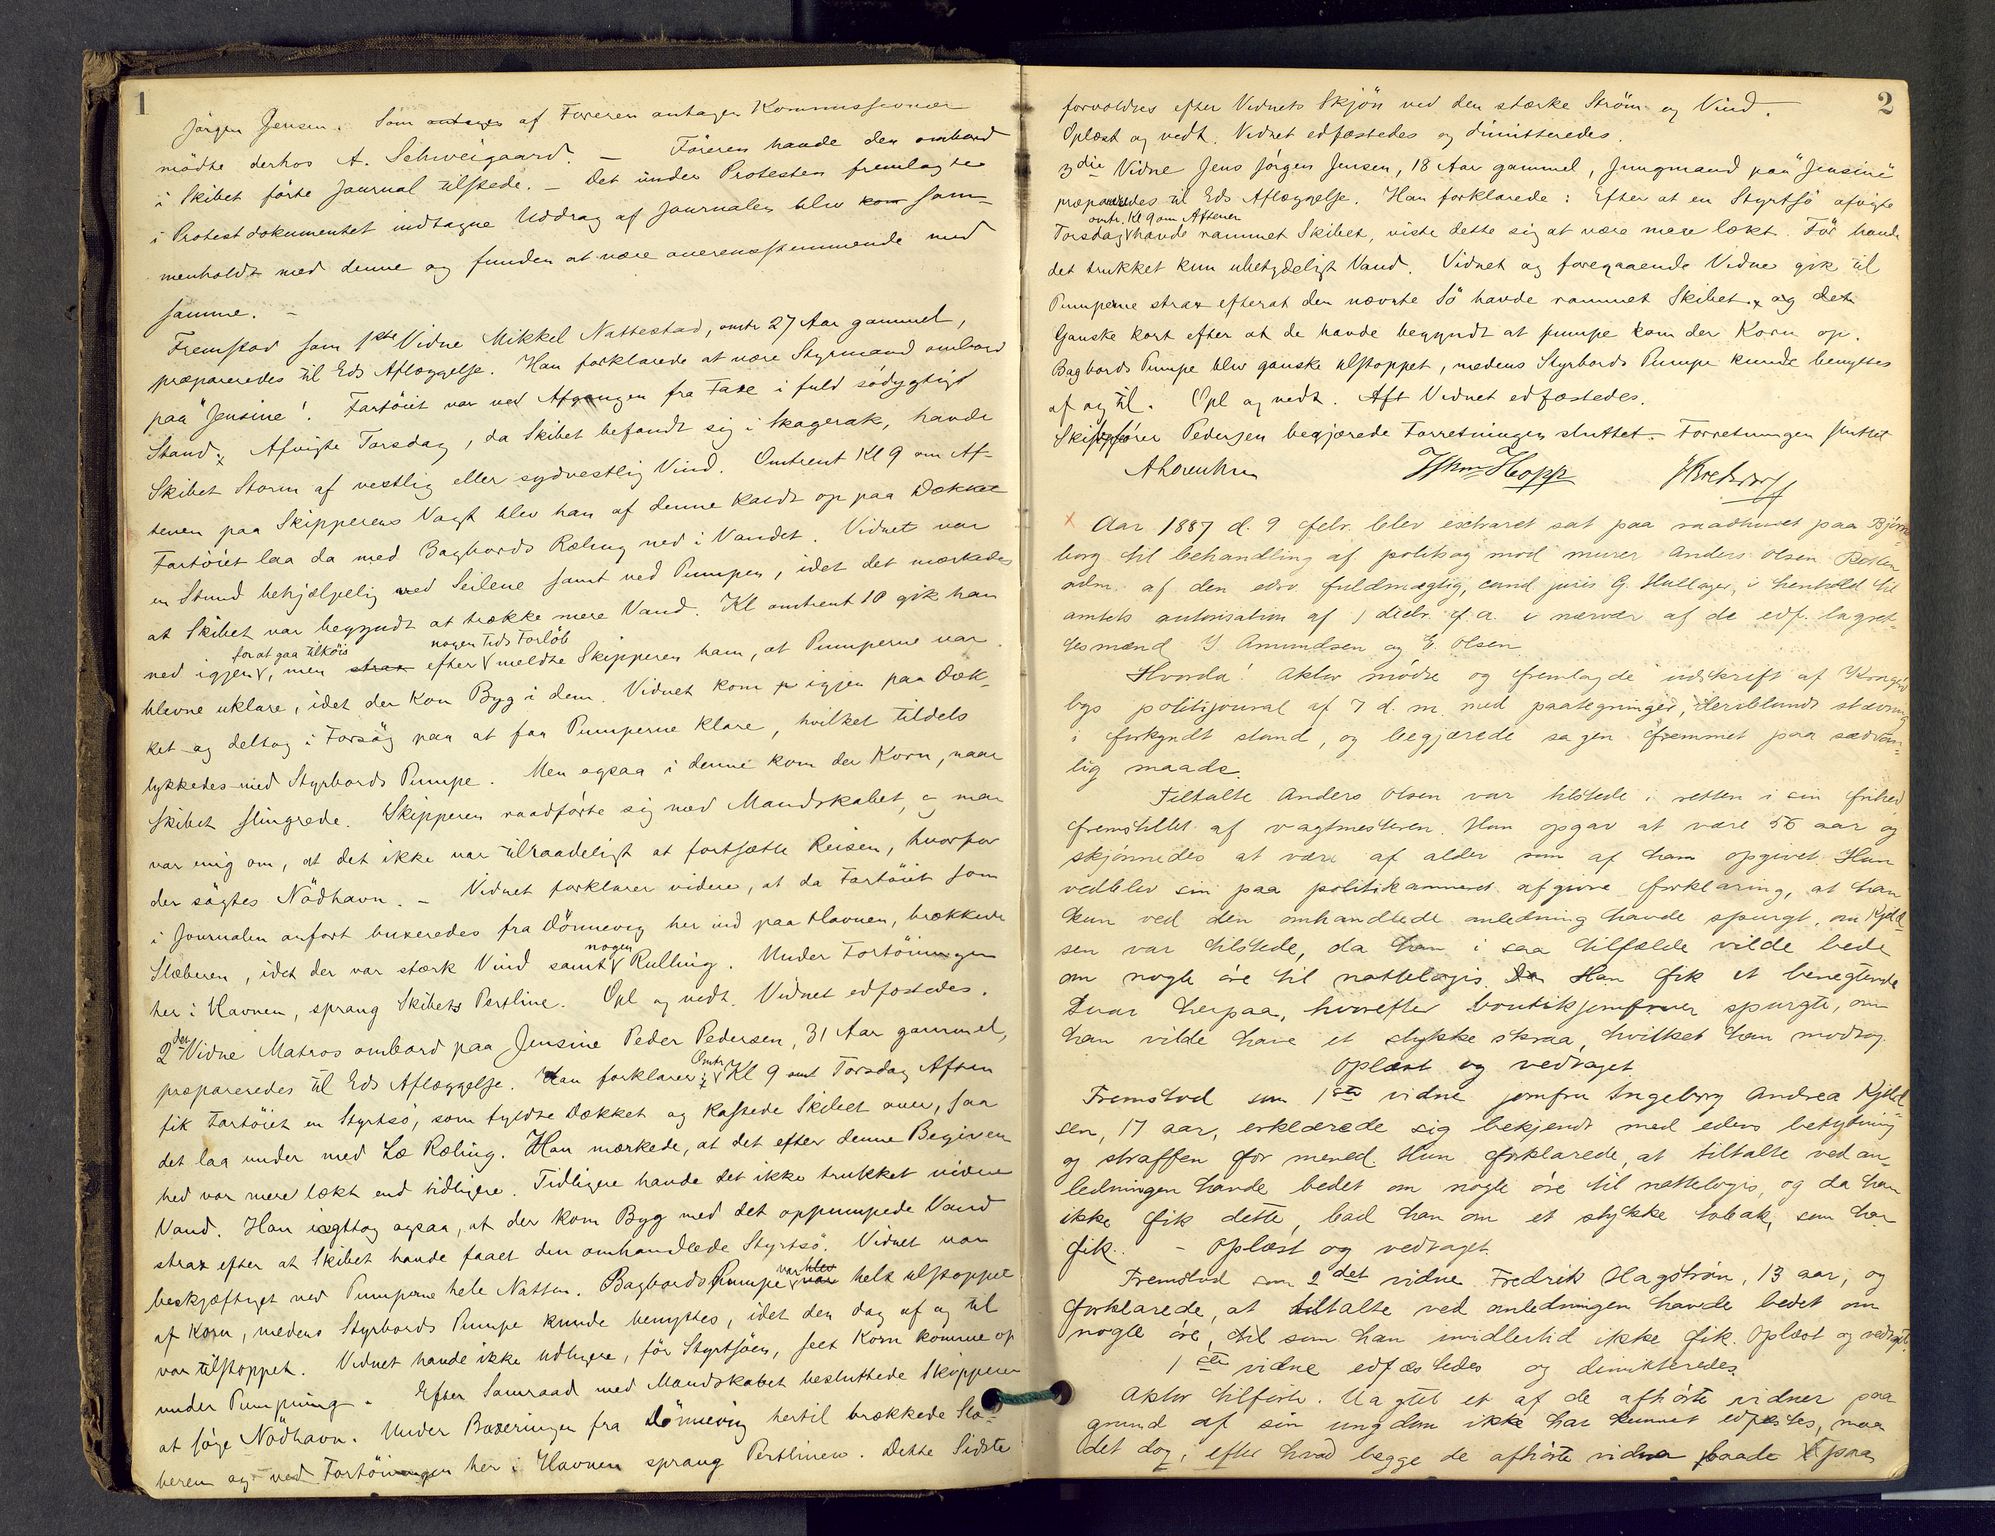 1
Jörgen Jensen. Som antages af Föreren antagen Kommissionær
mödte derhos A. Schweigaard. — Föreren havde den ombord
i Skibet förte Journal tilstede. — Det under Protesten fremlagte
i Protestdokumentet indtagne Uddrag af Journalen blev kom sam-
menholdt med denne og funden at være overensstemmende med
samme. —
Fremstod som 1ste Vidne Mikkel Nattestad, omtr 27 Aar gammel,
præpareredes til Eds Aflæggelse. Han forklarede at være Styrmand ombord
paa "Jensine". Fartöiet var ved Afgangen fra Faxe i fuld södygtigt
Stand. Afvigte Torsdag, da Skibet befandt sig i Skagerak, havde
Skibet Storm af vestlig eller sydvestlig Vind. Omtrent Kl 9 om Af-
tenen paa Skipperens Vagt blev han af denne kaldt op paa Dækket
Fartöiet laa da med Bagbords Ræling ned i Vandet. Vidnet var
en Stund behjælpelig med Seilene samt ved Pumpen, idet det mærkedes
at Skibet var begyndt at trække mere Vand. Kl omtrent 10 gik han
for at gaa tilköis nogen Tids Forløb
ned igjen, men strax efter meldte Skipperen ham, at Pumperne var
blevne uklare, idet der kom Byg i dem. Vidnet kom p igjen paa Dæk-
ket og deltog i Forsög paa at faa Pumperne klare, hvilket tildels
lykkedes med Styrbords Pumpe. Men ogsaa i denne kom der Korn, naar
skibet slingrede. Skipperen raadförte sig med Mandskabet, og man
var enig om, at det ikke var tilraadeligt at fortsætte Reisen, hvorfor
der sögtes Nödhavn. — Vidnet forklarer videre, at da Fartöiet som
i Journalen anfört buxeredes fra Dönnevig her ind paa Havnen, brækkede
nogen
Slæberen, idet der var stærk Vind samt Rulling. Under Fortöiningen
her i Havnen, sprang Skibets Pertline. Opl og vedt. Vidnet edfæstedes.
2det Vidne Matros ombord paa Jensine Peder Pedersen, 31 Aar gammel,
Omtr
præpareredes til Eds Aflæggelse. Han forklarer: Kl 9 omt Torsdag Aften
fik Fartöiet en Styrtsö, som fyldte Dækket og kastede Skibet over, saa
det laa under med Læ Ræling. Han mærkede, at det efter denne Begiven
hed var mere lækt end tidligere. Tidligere havde det ikke trukket videre
Vand. Han iagttog ogsaa, at der kom Byg med det oppumpede Vand
strax efter at Skibet havde faaet den omhandlede Styrtsö. Vidnet var
var blev
beskjæftiget ved Pumperne hele Natten. Bagbords Pumpe var helt tilstoppet
af Korn, medens Styrbords Pumpe kunde benyttes, idet den dog af og til
var tilstoppet. Vidnet havde ikke tidligere, för Styrtsöen, seet Korn komme op
under Pumpning. Efter Samraad med Mandskabet besluttede Skipperen
at söge Nödhavn. Under Buxeringen fra Dönnevig hertil brækkede Slæ-
beren og ved Fortöiningen her i Havnen sprang Pertlinen. Dette Sidste
2
forvoldtes efter Vidnets Skjön ved den stærke Ström og Vind.
Oplæst og vedt. Vidnet edfæstedes og dimitteredes.
3die Vidne Jens Jörgen Jensen, 18 Aar gammel, Jungmand paa "Jensine"
præpareredes til Eds Aflæggelse. Han forklarede: Efter at en Styrtsö afvigte
omtr. Kl 9 om Aftenen
Torsdag havde rammet Skibet, viste dette sig at være mere lækt. För havde
det trukket kun ubetydeligt Vand. Vidnet og foregaaende Vidne gik til
Pumperne strax efterat den nævnte Sö havde rammet Skibet, og det
Ganske kort efter at de havde begyndt at pumpe kom der Korn op.
Bagbords Pumpe blev ganske tilstoppet, medens Styrbords Pumpe kunde benyttes
af og til. Opl og vedt. Aft Vidnet edfæstedes.
Skibsförer Pedersen begjærede Forretningen sluttet. Forretningen sluttet
Hopp
x Aar 1887 d. 9 febr. blev extraret sat paa raadhuset paa
borg til behandling af politisag mod murer Anders Olsen
adm. af den edsv fuldmægtig, cand juris G. Hallager, i henhold til
amtets autorisation af 1 f.a. i nærvær af de edf. lagret-
tesmænd J. Amundsen og E. Olsen
Hvorda! Aktor mödte og fremlagde udskrift af
bys politijournal af 7 d. m. med paategninger, iseriblandt stævning
i forkyndt stand, og begjærede sagen fremmet paa sædvan-
lig maade.
Tiltalte Anders Olsen var tilstede i retten i sin frihed
fremstillet af vagtmesteren. Han opgav at være 56 aar og
skjönnedes at være af alder som af ham opgivet. Han
vedblev sin paa politikammeret afgivne forklaring, at han
kun ved den omhandlede anledning havde spurgt, om Kjeld-
sen var tilstede, da han i saa tilfælde vilde bede
om nogle öre til nattelogis. Da Han fik et benegtende
svar herpaa, hvorefter boutikjomfruer spurgte, om
han vilde have et stykke skraa, hvilket han modtog.
Oplæst og vedtaget
Fremstod som 1ste vidne jomfru Ingeborg Andrea Kjeld
sen, 17 aar, erklærede sig bekjendt med edens betydning
og straffen for mened. Hun forklarede, at tiltalte ved an-
ledningen havde bedet om nogle öre til nattelogis, og da han
ikke fik dette, bad han om et stykke tobak, som han
fik. — Oplæst og vedtaget.
Fremstod som 2det vidne Fredrik Hagström, 13 aar, og
forklarede, at tiltalte ved anledningen havde bedet om
nogle öre, som han imidlertid ikke fik. Oplæst og vedtaget.
1ste vidne edfæstedes og demitteredes.
Aktor tilförte. Uagtet et af de afhörte vidner paa
grund af sin ungdom ikke har kunnet edfæstes, maa
det dog, efter hvad begge de afhörte vidner baade paa